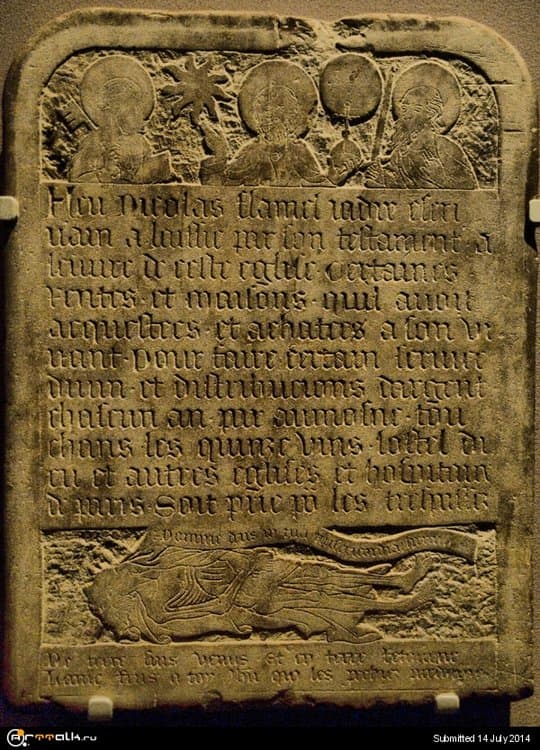 Feu Nicolas flamel iadis escri
uain a laissie par son testament a
leuure de ceste eglise Certaines
rentes et maisons quil auoit
acquestees et achatees a son vi
uant pour faire certain seruice
diuin et distribucions dargent
chascun an par aumosne tou
chans les quinze vins lostel di
eu et autres eglises et hospitaux
de paris Soit prie po les trespassez
Domine deus in tua misericordia speraui
De terre suis venus et en terre retourne
Lame rens a toy Jhu qui les pechiez pardonne
ArtTalk.ru
Submitted 14 July 2014